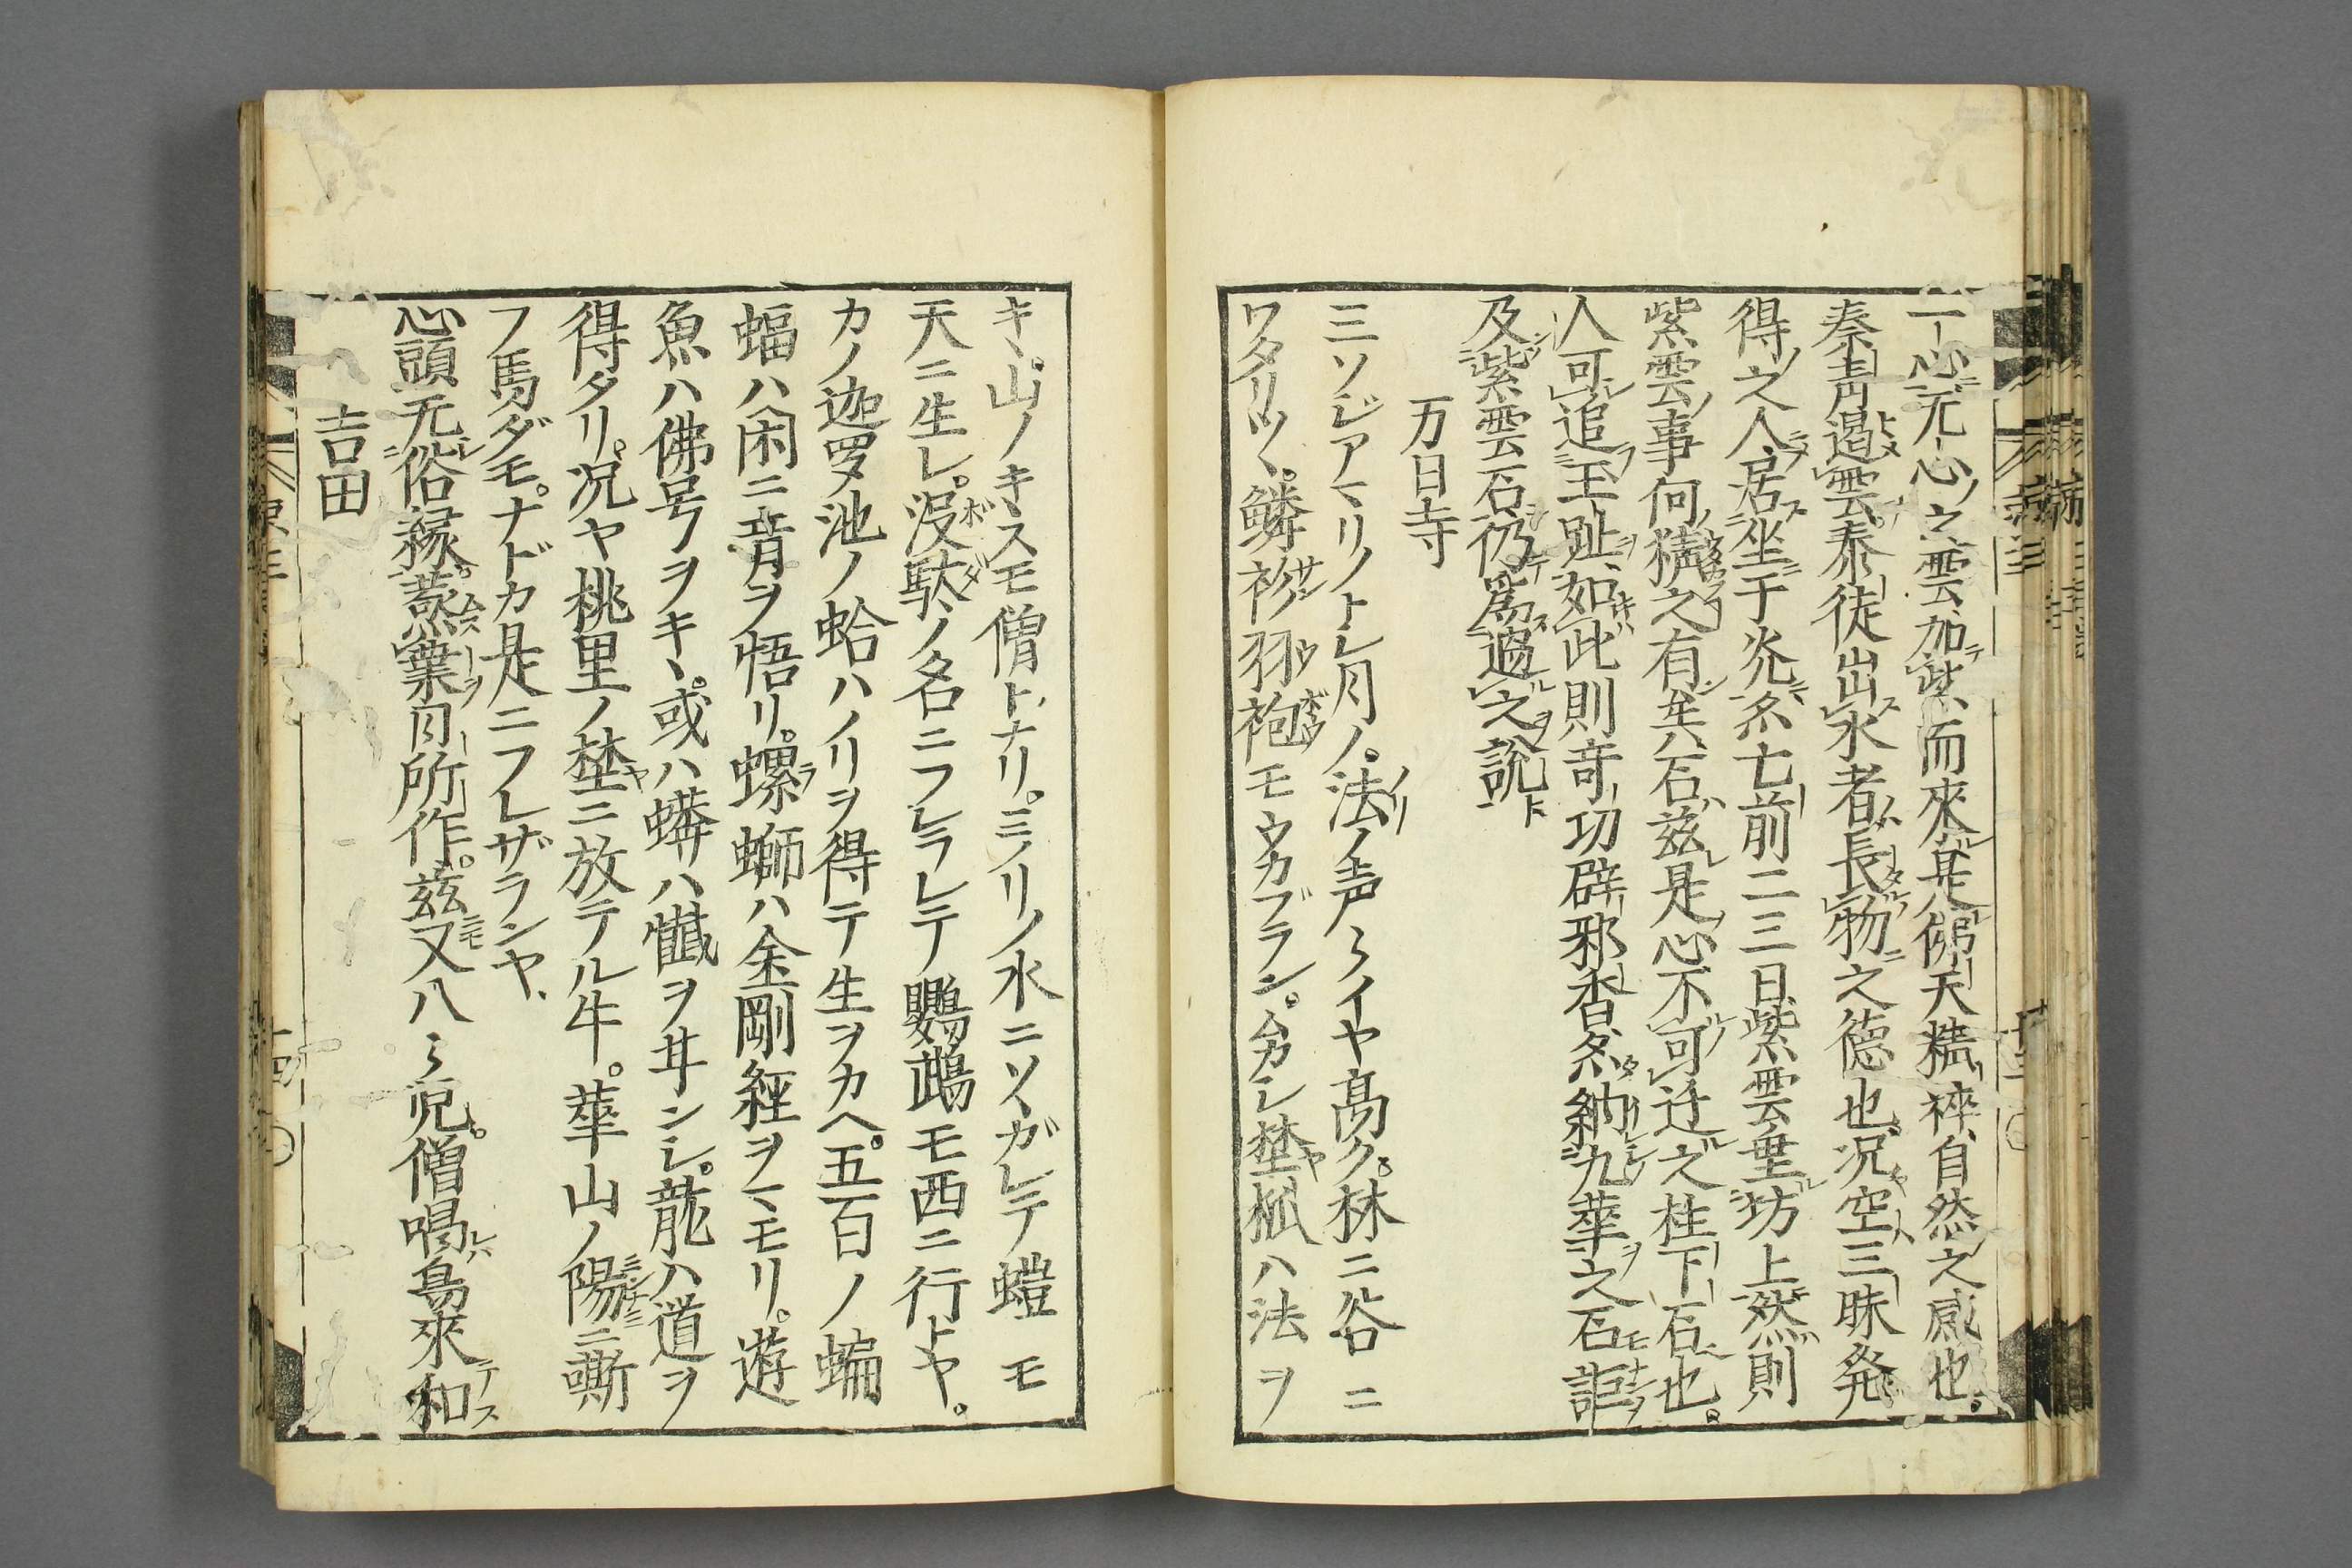 一心元心之雲加紫而來是儞天精粹自然之感也。
秦青遏雲泰徒出水者長物之德也況空三昧発
得之人居坐于炎然七前二三日紫雲垂坊上然則
紫雲事何猜之有矣石茲是心不可迁之柱下石也。
人可追王趾如此則竒功辟邪香糸納九華之石詎
及紫雲石仍爲過之說
万日寺
三ソヂアマリノトシ月ノ。法ノ声〱イヤ高ク。林ニ谷ニ
ワタリツヽ。鱗衫羽袍モウカブラン。ムカシ埜狐ハ法ヲ
キヽ。山ノキヽスモ僧トナリ。ミノリノ水ニソヽガレテ螘モ
天ニ生レ。没駄ノ名ニフレラレテ鸚鵡モ西ニ行トヤ。
カノ迦羅池ノ蛤ハノリヲ得テ生ヲカヘ。五百ノ蝙
蝠ハ闲ニ音ヲ悟リ。螺螄ハ金剛經ヲマモリ。遊
魚ハ佛号ヲキヽ。或ハ蟒ハ懺ヲヰンシ。龍ハ道ヲ
得タリ。況ヤ桃里ノ埜ニ放テル牛。華山ノ陽ニ嘶
フ馬ダモ。ナドカ是ニフレザランヤ、
心頭无俗縁。蒸葉月所作。茲又八〻児。僧喝鳥來和
吉田